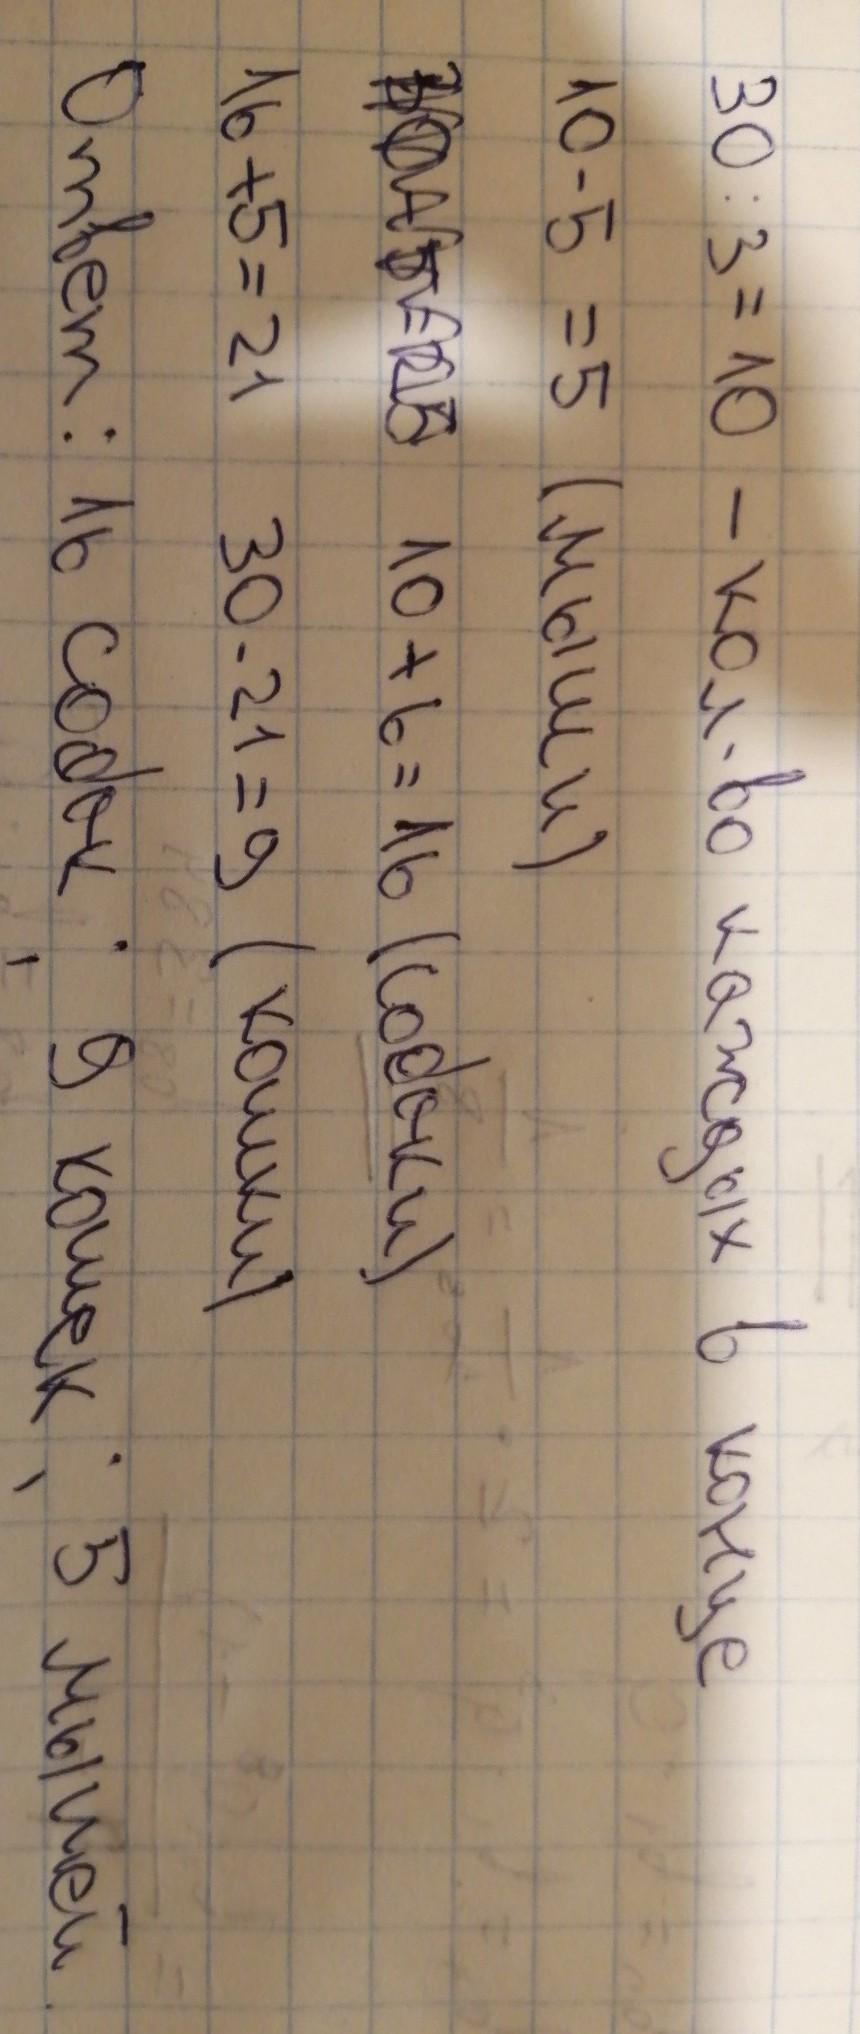 30 : 3 = 10 - кол-во каждых в конце
10 - 5 = 5 (мыши)
10 + 6 = 16 (собаки)
16 + 5 = 21 30 - 21 = 9 (кошки)
Ответ: 16 собак; 9 кошек; 5 мышей.